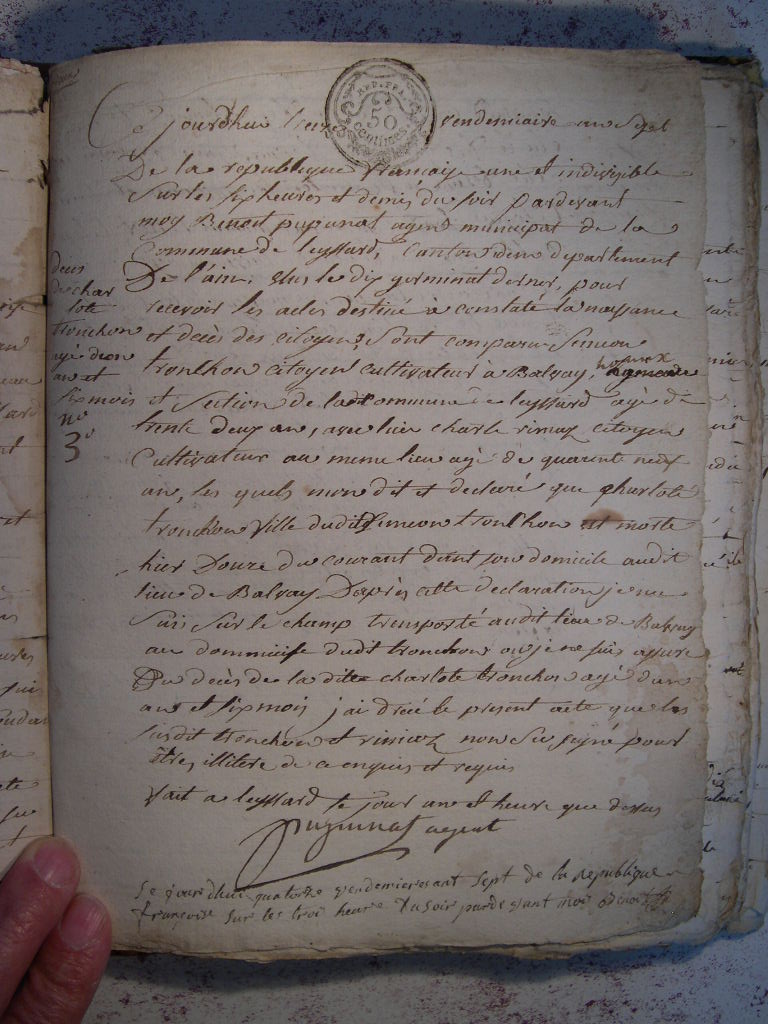 REP. FRA.
50
centimes
Ce jourdhui treize vendemiaire an Sept
De la republique francaise une et indivisible
Sur les six heures et demis du soir pardevant
moy Benoit pugunat agent municipal de la
Commune de leyssard, Canton idem departement
De l'ain, elus le dix germinal dernier, pour
recevoir les actes destiné a constaté la naissance
et décès des citoyens, Sont comparu Simeon
tronchon citoyen cultivateur à Balvay, hameaux
et Section de la commune de leyssard agé de
trente deux an, avec luis charle rimoz citoyen
Cultivateur au meme lieu agé de quarente neuf
an, les quels mon dit et declaré que charlote
tronchon fille dudit Simeon tronchon est morte
hier Douze du courant dant son domicile audit
lieu de Balvay. D'après cette declaration je me
Suis Sur le champ transporté audit lieu de Balvay
au dommicile dudit tronchon ou je me suis assuré
Du decès de la dite charlote tronchon agé dun
an et six mois j'ai dréce le present acte que les
susdit tronchon et rimoz non Su signé pour
êtres illitere de ce enquis et requis
fait a leyssard le jour an et heure que dessus
pugunat agent
deces
de char
lote
tronchon
agé dun
an et
six mois
no
3
Ce jourdhui quatorze vendemiere ant Sept de la Republique
françoise Sur les troi heure Du Soir pardevant moi Benoit